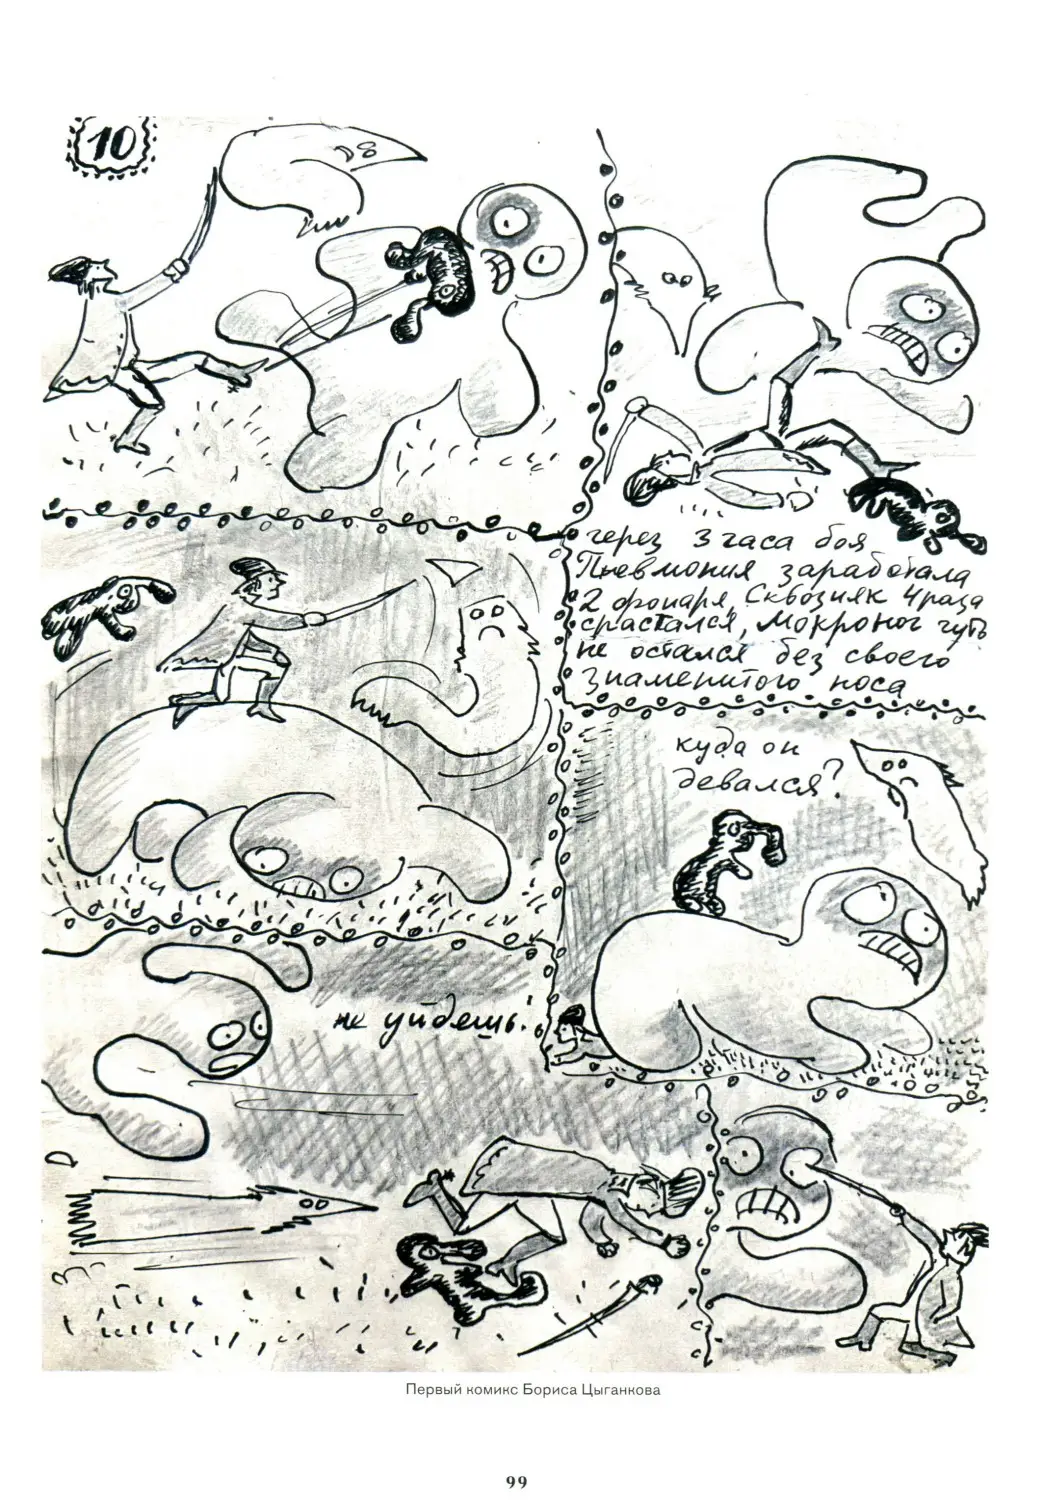 10
через 3 часа боя
Пневмония заработала
2 фонаря, Сквозняк 4 раза
срастался, Мокронос чуть
не остался без своего
знаменитого носа
куда он
девался?
не уйдешь!
Первый комикс Бориса Цыганкова
99